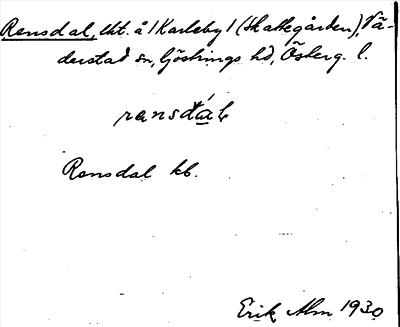 Rensdal, tkt. å 1 Karleby 1 (Skattegården), Vä-
derstad sn, Göstrings hd, Österg. l.
Rensdal kb.
Erik Alm 1930